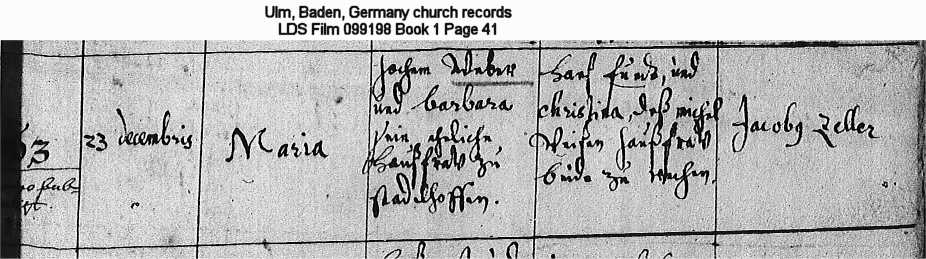 Ulm, Baden, Germany church records
LDS Film 099198 Book 1 Page 41
63
23 decembris
Maria
Jochem Weber
und barbara
sein eheliche
haußfraw zu
stadelhoffen.
Hanß und
christina, deß michel
haußfraw
beide zu
Jacoby Zeller